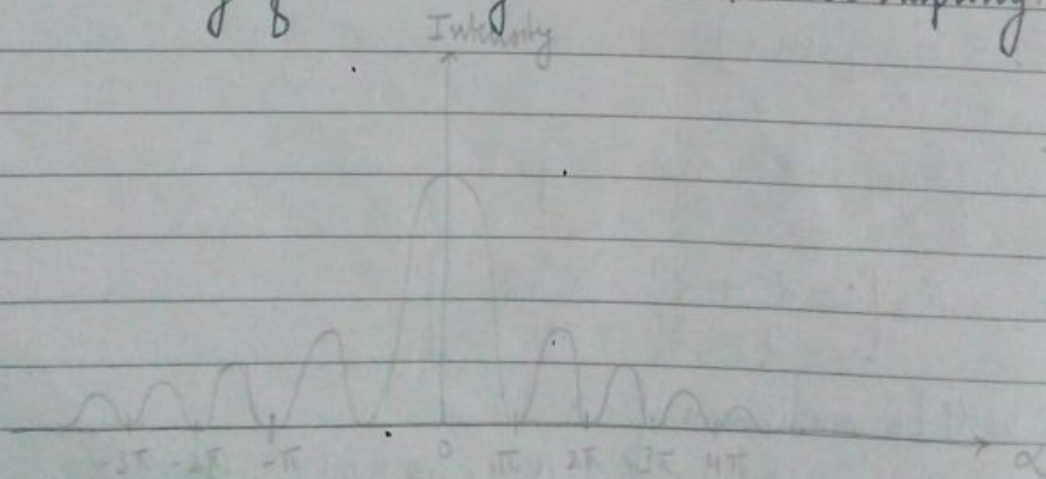 Intensity
-3π -2π -π 0 π 2π 3π 4π α